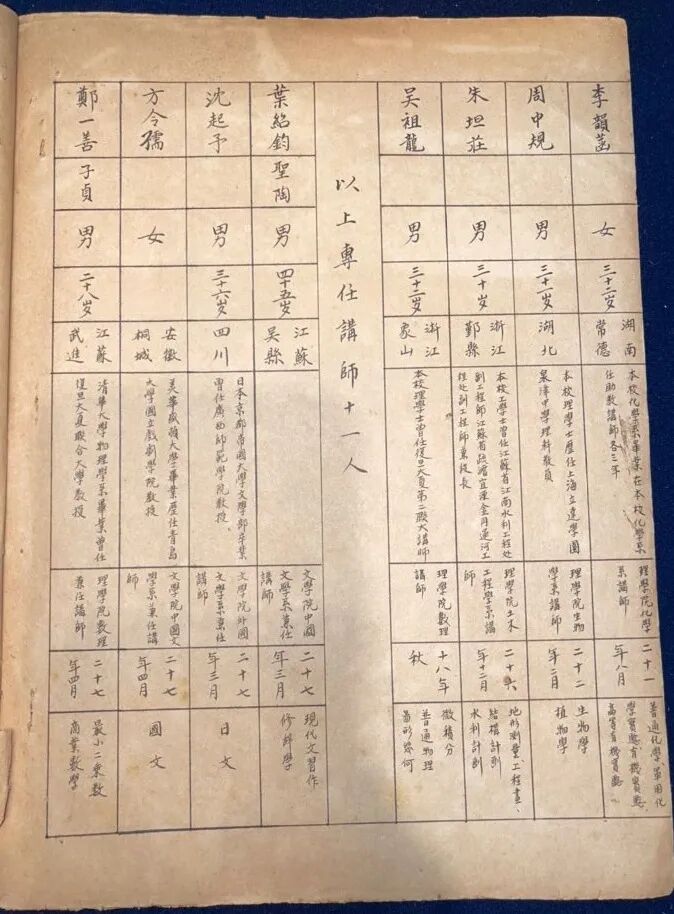 李韻菡
女
三十二岁
湖南
常德
本校化學系畢業在本校化學系
任助教講師各三年
理學院化學
系講師
二十一
年八月
普通化學、軍用化
學實驗有機實驗
高等有機實驗
周中規
男
三十一岁
湖北
本校理學士歷任上海立達學園
襄陽中學理科教員
理學院生物
學系講師
二十二
年二月
生物學
植物學
朱坦莊
男
三十岁
浙江
鄞縣
本校工學士曾任江蘇省江南水利工程处
副工程師江蘇省疏濬宜溧金丹運河工
程处副工程師兼段長
理學院土木
工程學系講
師
二十六
年十二月
地形測量、工程畫、
結構計劃
水利計劃
吴祖龍
男
三十二岁
浙江
象山
本校理學士曾任復旦大夏第二聯大講師
理學院數理
講師
十八年
秋
微積分
普通物理
畫形幾何
以上專任講師十一人
葉紹鈞
聖陶
男
四十五岁
江蘇
吴縣
文學院中國
文學系兼任
講師
二十七
年三月
現代文習作
修辞學
沈起予
男
三十六岁
四川
日本京都帝國大學文學部卒業
曾任廣西師範學院教授。
文學院外國
文學系兼任
講師
二十七
年三月
日文
方令孺
女
安徽
桐城
美華盛頓大學畢業歷任青島
大學國立戲劇學院教授
文學院中國文
學系兼任講
師
二十七
年四月
國文
鄭一善
子貞
男
二十八岁
江蘇
武進
清華大學物理學系畢業曾任
復旦大夏聯合大學教授
理學院數理
兼任講師
二十七
年四月
最小二乘數
商業數學